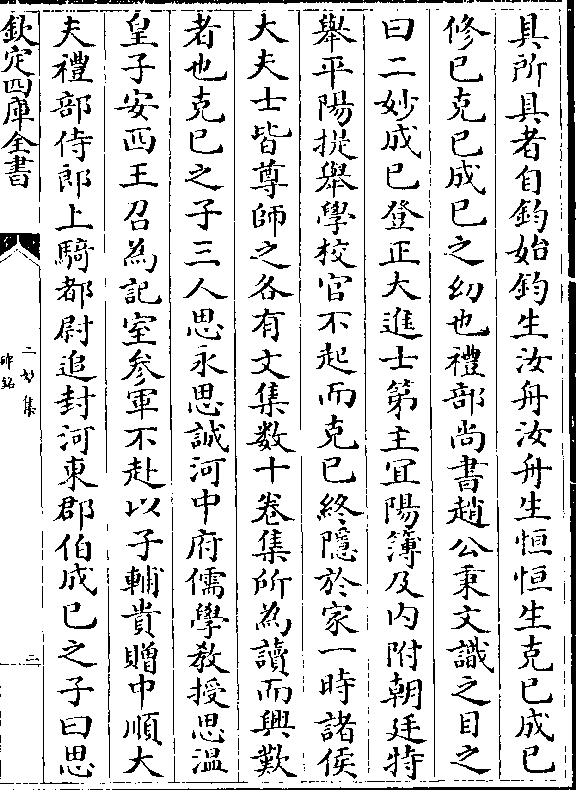 具所具者自鈞始鈞生汝舟汝舟生恒恒生克已成已
修已克已成已之幼也禮部尚書趙公秉文識之目之
曰二妙成已登正大進士第主宜陽簿及内附朝廷特
舉平陽提舉學校官不起而克已終隱於家一時諸侯
大夫士皆尊師之各有文集数十卷集所為讀而興歎
者也克已之子三人思永思誠河中府儒學教授思温
皇子安西王召為記室參軍不赴以子輔貴贈中順大
夫禮部侍郎上騎都尉追封河東郡伯成已之子曰思
欽定四庫全書
二妙集
碑銘
二